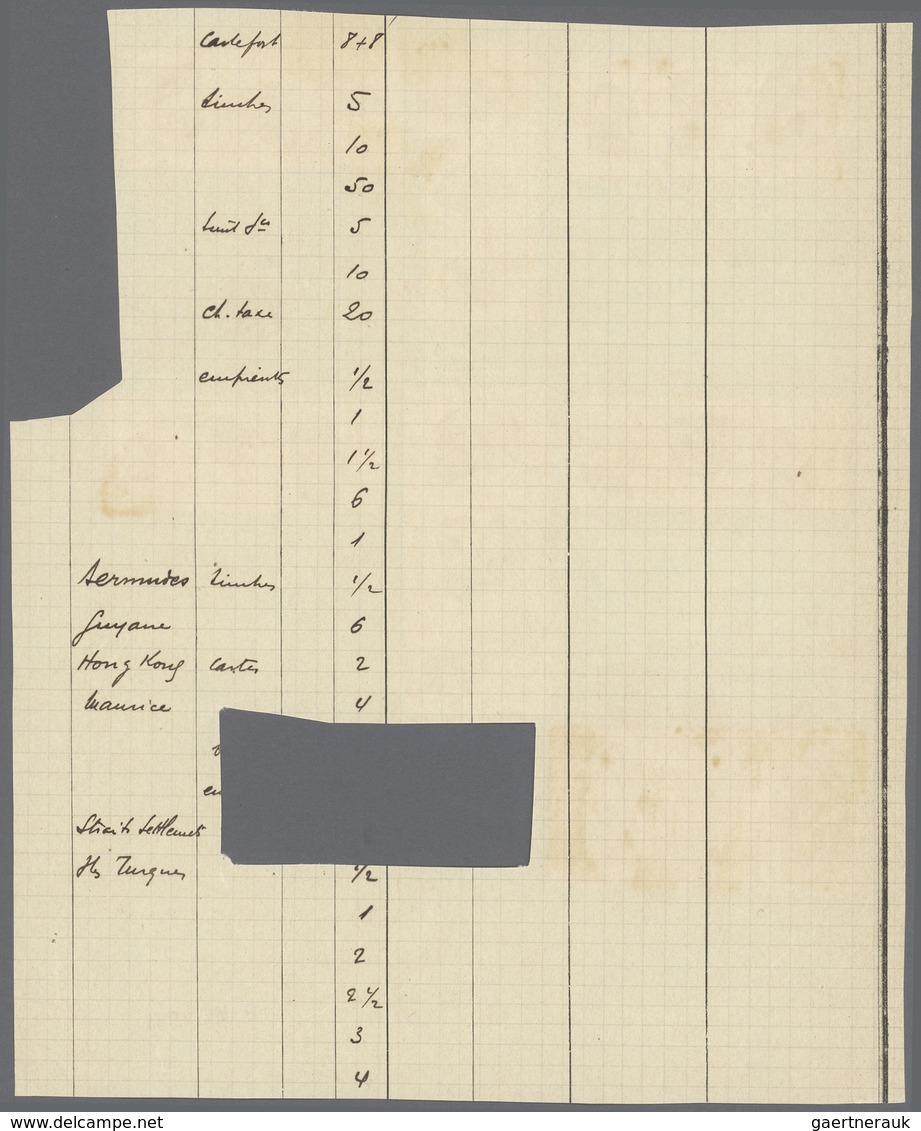 8+8
timbres 5
10
50
5
10
ch. taxe 20
1/2
1
1 1/2
6
1
Bermudes timbres 1/2
Guyane 6
Hong Kong cartes 2
Maurice 4
en
Straits Settlements
Iles Turques 1/2
1
2
2 1/2
3
4
www.delcampe.net
gaertnerauk